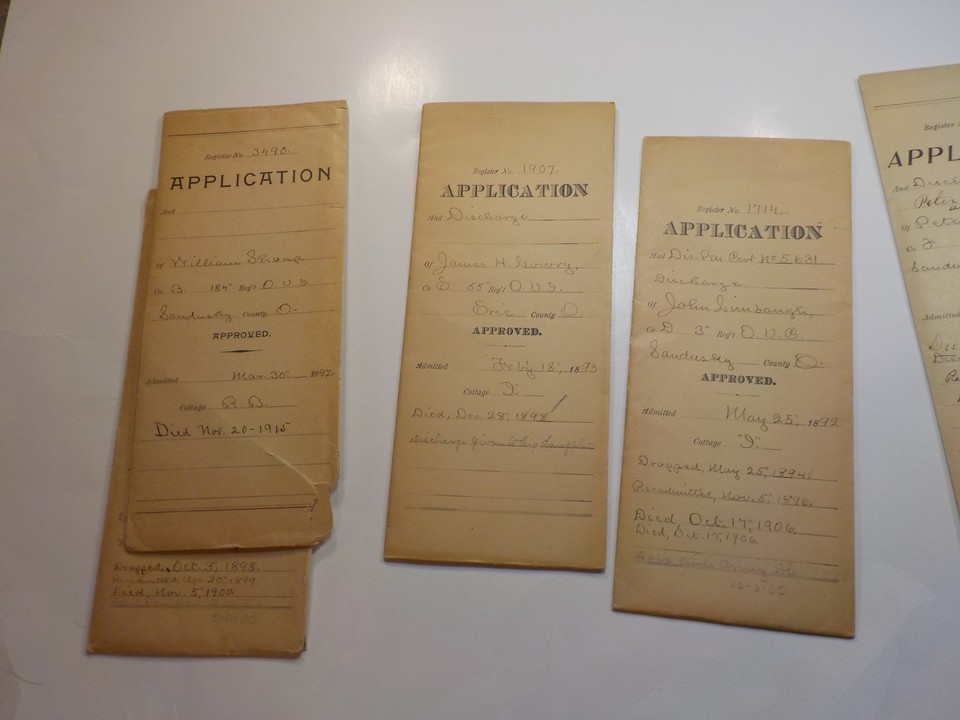 Register No. 3490.
APPLICATION
And
Of William
Co B. 184" Reg't O. V. I.
Sandusky County, O.
APPROVED.
Admitted Mar. 30" 1897
Cottage R B.
Died Nov. 20-1915
Dropped, Oct. 3", 1898.
Readmitted Apr. 20" 1899
Died, Nov. 5", 1900
Register No. 1907.
APPLICATION
And Discharge
Of James H.
Co E 55" Reg't O. V. I.
Erie County O
APPROVED.
Admitted 18", 1893
Cottage "I".
Died, Dec 28", 1898
Discharge given to his daughter
Register No. 1714.
APPLICATION
And Dis. Pen Cert. No 5631.
Discharge
Of John
Co D 3" Reg't O. V. C.
Sandusky County O.
APPROVED.
Admitted May 25", 1892
Cottage "I".
Dropped, May 25", 1894.
Readmitted, Nov. 5", 1896.
Died, Oct. 17", 1906
Died, Oct. 17, 1906
Register
APPL
And Disc
Peter
Of Pete
Co F.
Sandu
Admitted